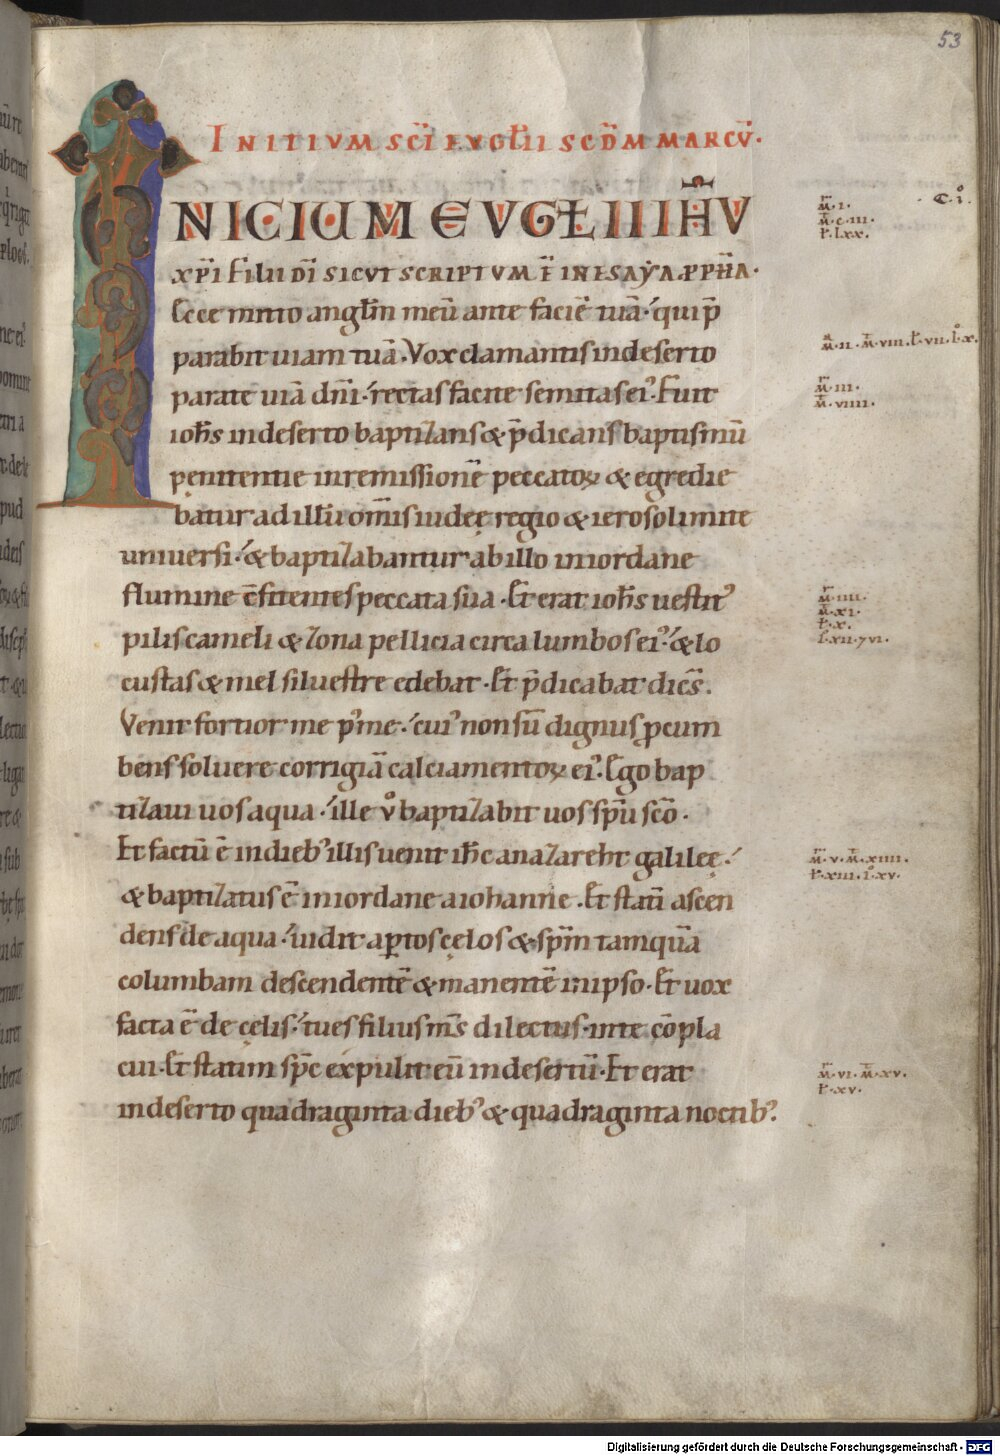 53
INITIVM SC̄I EVGL̄II SCD̄M MARCV̄.
INICIUM EVGL̄II IH̄V
XP̄I FILII DĪ SICVT SCRIPTVM Ē IN ESAYA PPH̄A.
Ecce mitto angl̄m meū ante faciē tuā. qui p̄
parabit uiam tuā. Vox clamantis in deserto
parate uiā dn̄i. rectas facite semitas ei᾿. Fuit
ioh̄s in deserto baptizans & p̄dicans baptismū
penitentie in remissionē peccatoꝝ & egredie
batur ad illū om̄is iudeę regio & ierosolimite
uniuersi. & baptizabantur ab illo in iordane
flumine c̄fitentes peccata sua. Et erat ioh̄s uestit᾿
pilis cameli & zona pellicia circa lumbos ei᾿. & lo
custas & mel siluestre edebat. Et p̄dicabat dic̄s.
Venit fortior me p᾿ me. cui᾿ non sū dignus ꝓcum
bens soluere corrigiā calciamentoꝝ ei᾿. Ego bap
tizaui uos aqua. ille vͦ baptizabit uos sp̄u sc̄o.
Et factū ē in dieb᾿ illis uenit ih̄c a nazareht galileę.
& baptizatus ē in iordane a iohanne. Et statī ascen
dens de aqua. uidit aꝑtos cęlos & sp̄m tamquā
columbam descendentē & manentē in ipso. Et uox
facta ē de cęlis. tu es filius m̄s dilectus. in te cōpla
cui. Et statim sp̄c expulit eū in desertū. Et erat
in deserto quadraginta dieb᾿ & quadraginta noctib᾿.
C. i.
M. I.
M. C. III.
L. XX.
M. II. M. VIII. L. VII. I. X.
M. III.
M. VIIII.
M. IIII.
M. XI.
L. X.
M. V. M. XIIII.
L. XIII. I. XV.
M. VI. M. XV.
L. XV.
Digitalisierung gefördert durch die Deutsche Forschungsgemeinschaft - DFG